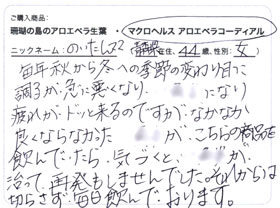 ご購入商品:
珊瑚の島のアロエベラ生葉・マクロヘルス アロエベラコーディアル
ニックネーム: のいたん22 静岡在住、44歳、性別: 女
毎年秋から冬への季節の変わり目に
調子が急に悪くなり、 になり
疲れがドッと来るのですが、なかなか
良くならなかった が、こちらの商品を
飲んでいたら、気づくと、 が
治って、再発もしませんでした。それからは
切らさず毎日飲んでおります。